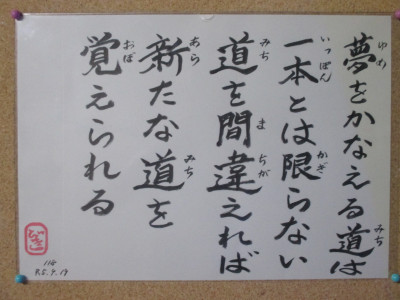 夢をかなえる道は
一本とは限らない
道を間違えれば
新たな道を
覚えられる